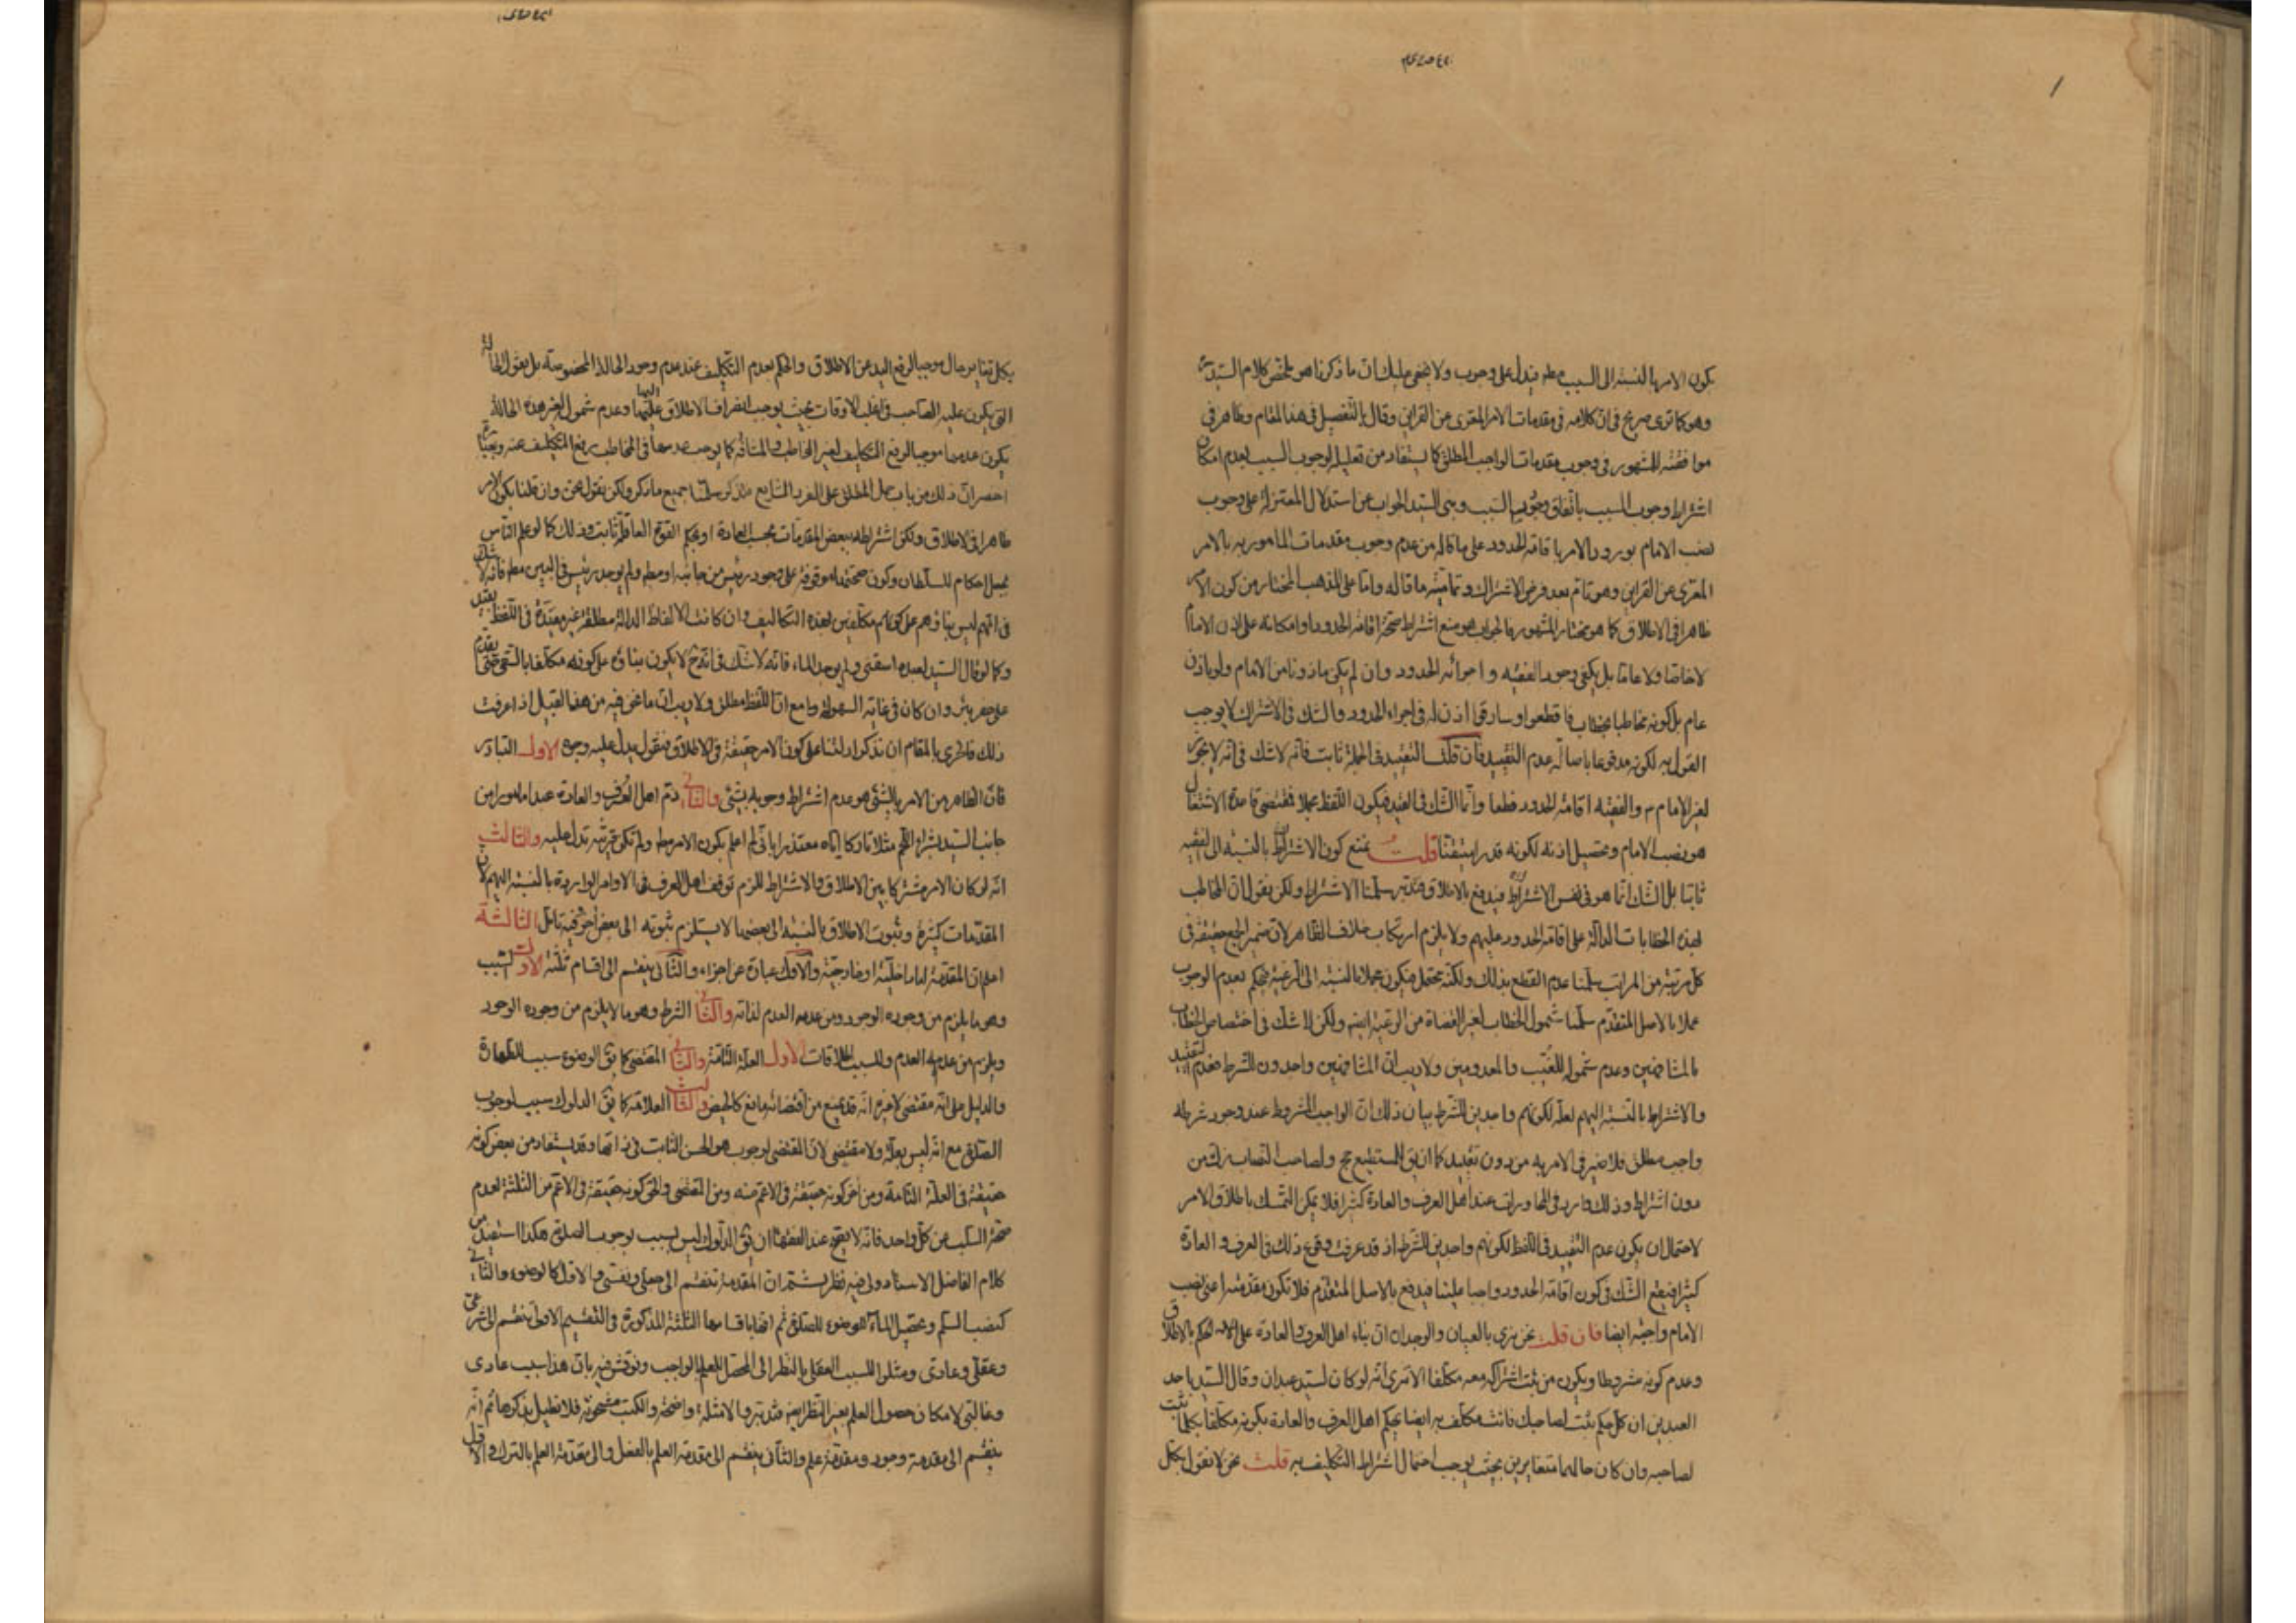 يكون الامر بالنسبة الى السبب مطلقا فيدل على وجوب ولا يخفى عليك ان ما ذكرنا هو ملخص كلام السيد
وهو كما ترى صريح في ان كلامه في مقدمات الامر المعرى عن القراين وقال بالتفصيل في هذا المقام وظاهر في
موافقته للمشهور في وجوب مقدمات الواجب المطلق كما يستفاد من تعليله لوجوب السبب بعدم امكان
اشتراط وجوب المسبب باتفاق وجود السبب وبنى السيد الجواب عن استدلال المعتزلة على وجوب
نصب الامام بورود الامر باقامة الحدود على ما قاله من عدم وجوب مقدمات المامور به بالامر
المعرى عن القراين وهو تام بعد فرض الاشتراك وتمامية ما قاله واما على المذهب المختار من كون الامر
ظاهرا في الاطلاق كما هو مختار المشهور فالجواب هو منع اشتراط صحة اقامة الحدود او امكانه على اذن الامام
لا خاصا ولا عاما بل يكفى وجود الفقيه واجرائه الحدود وان لم يكن ماذونا من الامام ولو باذن
عام بل كونه مخاطبا بخطاب فاقطعوا وسارقي اذن له في اجراء الحدود والشك في الاشتراك لا يوجب
القول به لكونه مدفوعا باصالة عدم التقييد فان قلت التقييد في الجملة ثابت فانه لا شك في انه لا يجوز
لغير الامام م والفقيه اقامة الحدود قطعا وانما الشك في القيد فيكون اللفظ مجملا فمقتضى قاعدة الاشتغال
هو نصب الامام وتحصيل اذنه لكونه قدرا متيقنا قلت نمنع كون الاشتراط بالنسبة الى الفقيه
ثابتا بل الشك انما هو في نفس الاشتراط فيدفع بالاطلاق فتدبر سلمنا الاشتراط ولكن نقول ان المخاطب
لهذه الخطابات الدالة على اقامة الحدود عليهم ولا يلزم ارتكاب خلاف الظاهر لان ضمير الجمع حقيقة في
كل مرتبة من المراتب سلمنا عدم القطع بذلك ولكنه محتمل فيكون مجملا بالنسبة الى الرعية فيحكم بعدم الوجوب
عملا بالاصل المتقدم سلمنا شمول الخطاب لغير القضاة من الرعية ايضا ولكن لا شك في اختصاص الخطاب
بالمشافهين وعدم شموله للغيب والمعدومين ولا ريب ان المشافهين واجدون للشرط فعدم التقييد
والاشتراط بالنسبة اليهم لعله لكونهم واجدين للشرط بيان ذلك ان الواجب المشروط عند وجود شرطه
واجب مطلق فلا ضير في الامر به من دون تقييد كما ان يق للمستطيع حج ولصاحب النصاب زك من
دون اشتراط وذلك وارد في المحاورات عند اهل العرف والعادة كثيرا فلا يمكن التمسك باطلاق الامر
لاحتمال ان يكون عدم التقييد في اللفظ لكونهم واجدين للشرط اذ قد عرفت وقوع ذلك في العرف والعادة
كثيرا فيقع الشك في كون اقامة الحدود واجبا علينا فيدفع بالاصل المتقدم فلا تكون مقدمته اعنى نصب
الامام واجبة ايضا فان قلت نحن نرى بالعيان والوجدان ان بناء اهل العرف والعادة على الحكم بالاطلاق
وعدم كونه مشروطا ويكون من يثبت اشتراكه معه مكلفا الا ترى انه لو كان لسيد عبدان وقال السيد باحد
العبدين ان كل حكم يثبت لصاحبك فانت مكلف به ايضا يحكم اهل العرف والعادة بكونه مكلفا بكلما يثبت
لصاحبه وان كان حالهما متغايرين بحيث يوجب احتمال اشتراط التكليف به قلت نحن لا نقول بكل
بكل تغاير حال موجبا لرفع اليد عن الاطلاق والحكم بعدم التكليف عند عدم وجود الحالة المخصوصة بل نقول الحالة
التي يكون عليه الصاحب في اغلب الاوقات بحيث يوجب انصراف الاطلاق اليها وعدم شمول لغير هذه الحالة
يكون عدمها موجبا لرفع التكليف لغير المخاطب والمشافه كما يوجب عدمها في المخاطب رفع التكليف عنه وبعبارة
اخصر ان ذلك من باب حمل المطلق على الفرد الشايع فتذكر سلمنا جميع ما ذكر ولكن نقول نحن وان قلنا بكون الامر
ظاهرا في الاطلاق ولكن اشتراطه ببعض المقدمات بحسب العادة او بحكم القوة العاقلة ثابت وذلك كما لو علم الناس
بجعل احكام للسلطان وكون صحتها موقوفة على وجود رئيس من جانبه او مطلقا ولم يوجد رئيس في البين مطلقا فانه لا شك
في انهم ليس بناؤهم على كونهم مكلفين بهذه التكاليف وان كانت الالفاظ الدالة مطلقة غير مقيدة في اللفظ بقيد
وكما لو قال السيد لعبده اسقني ولم يوجد الماء فانه لا شك في انه ح لا يكون بناؤه على كونه مكلفا بالسقى حتى يقدم
على حفر بئر وان كان في غاية السهولة وهذا مع ان اللفظ مطلق ولا ريب ان ما نحن فيه من هذا القبيل اذا عرفت
ذلك فالحري بالمقام ان نذكر ادلتنا على كون الامر حقيقة في الاطلاق فنقول يدل عليه وجوه الاول التبادر
فان الظاهر من الامر بالشئ هو عدم اشتراط وجوبه بشئ والثاني ذم اهل العرف والعادة عبدا مامورا من
جانب السيد بشراء اللحم مثلا تاركا اياه معتذرا باني لم اعلم بكون الامر مطلقا ولم تكن قرينة تدل عليه والثالث
انه لو كان الامر مشتركا بين الاطلاق والاشتراط للزم توقف اهل العرف في الاوامر الواردة بالنسبة اليهم لان
المقدمات كثيرة وثبوت الاطلاق بالنسبة الى بعضها لا يستلزم ثبوته الى بعض اخر فيه تامل الثالثة
اعلم ان المقدمة اما داخلية او خارجية والاول عبارة عن اجزاء والثاني ينقسم الى اقسام ثلثة الاول السبب
وهو ما يلزم من وجوده الوجود ومن عدمه العدم لذاته والثاني الشرط وهو ما لا يلزم من وجوده الوجود
ويلزم من عدمه العدم وللسبب اطلاقات الاول العلة التامة والثاني المقتضى كما يق الوضوء سبب للطهارة
والدليل على انه مقتضى لا غيره انه قد يمنع من اقتضائه مانع كالحيض والثالث العلامة كما يق الدلوك سبب لوجوب
الصلوة مع انه ليس بعلة ولا مقتضى لان المقتضى لوجوب هو الحسن الثابت في ذاتها وقد يستفاد من بعض كونه
حقيقة في العلة التامة ومن آخر كونه حقيقة في الاعم منه ومن المقتضى والحق كونه حقيقة في الاعم من الثلثة لعدم
صحة السلب عن كل واحد فانه لا يصح عند الفقهاء ان يق الدلوك ليس بسبب لوجوب الصلوة هكذا استفيد من
كلام الفاضل الاستاد ولى فيه نظر ثم ان المقدمة تنقسم الى فعلى ونفسى والاول كالوضوء والثاني
كنصب السلم وتحصيل الماء للوضوء للصلوة ثم اقسامها الثلثة المذكورة في التقسيم الاول ينقسم الى شرعى
وعقلي وعادى ومثلوا للسبب العقلى بالنظر الى المحصل للعلم الواجب ونوقش فيه بان هذا سبب عادى
وغالبى لامكان حصول العلم بغير النظر ايضا فتدبر والامثلة واضحة والكتب مشحونة فلا نطيل بذكرها ثم انه
ينقسم الى مقدمة وجود ومقدمة علم والثاني ينقسم الى مقدمة العلم بالفعل والى مقدمة العلم بالترك والاول